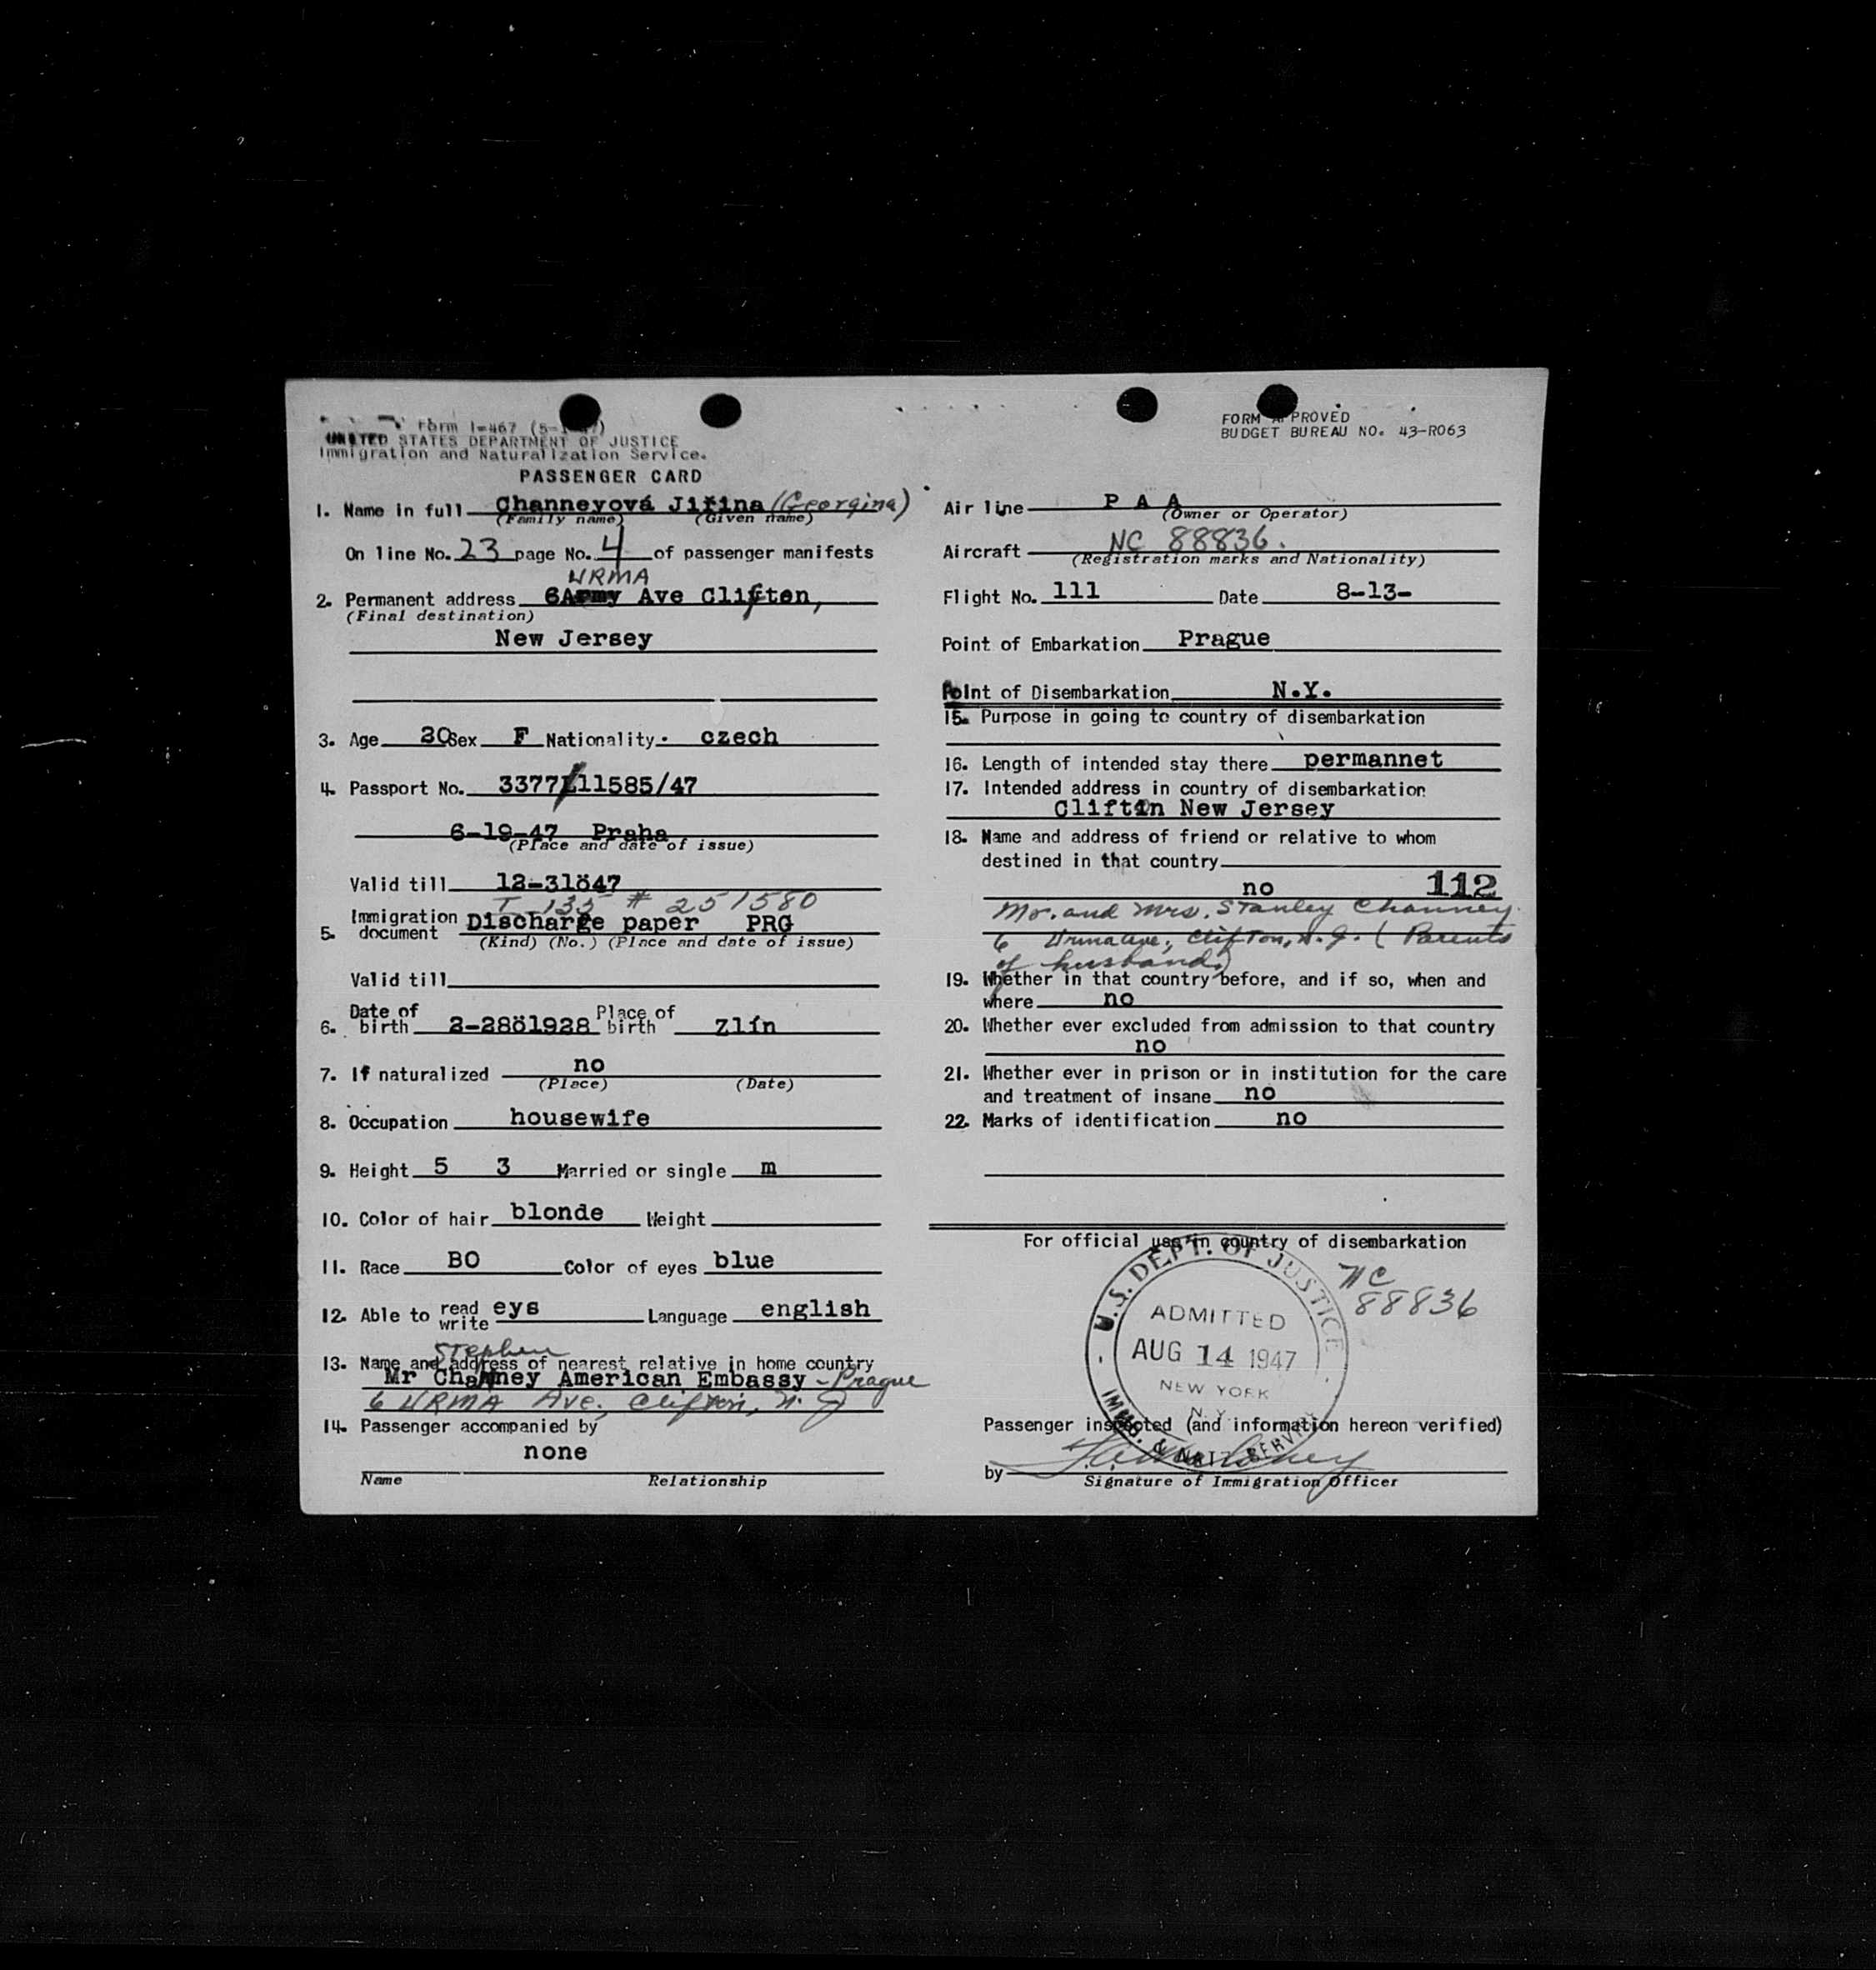 Form I-467
UNITED STATES DEPARTMENT OF JUSTICE
Immigration and Naturalization Service.
PASSENGER CARD
1. Name in full Channeyová Jiřina (Georgina)
(Family name) (Given name)
On line No. 23 page No. 4 of passenger manifests
URMA
2. Permanent address 6 Army Ave Clifton,
(Final destination)
New Jersey
3. Age 20 Sex F Nationality czech
4. Passport No. 3377/11585/47
6-19-47 Praha
(Place and date of issue)
Valid till 12-31ö47
T 135 # 251580
5. Immigration document Discharge paper PRG
(Kind) (No.) (Place and date of issue)
Valid till
6. Date of birth 2-28ö1928 Place of birth Zlín
7. If naturalized no
(Place) (Date)
8. Occupation housewife
9. Height 5 3 Married or single m
10. Color of hair blonde Weight
11. Race BO Color of eyes blue
12. Able to read write eys Language english
Stephen
13. Name and address of nearest relative in home country
Mr Channey American Embassy - Prague
6 URMA Ave, Clifton, N. J
14. Passenger accompanied by
none
Name Relationship
FORM APPROVED
BUDGET BUREAU NO. 43-R063
Air line P A A
(Owner or Operator)
Aircraft NC 88836.
(Registration marks and Nationality)
Flight No. 111 Date 8-13-
Point of Embarkation Prague
Point of Disembarkation N.Y.
15. Purpose in going to country of disembarkation
16. Length of intended stay there permannet
17. Intended address in country of disembarkation
Cliftin New Jersey
18. Name and address of friend or relative to whom
destined in that country
no 112
Mr. and Mrs. Stanley Channey
6 Urma Ave, Clifton, N.J. (Parents
of husband.)
19. Whether in that country before, and if so, when and
where no
20. Whether ever excluded from admission to that country
no
21. Whether ever in prison or in institution for the care
and treatment of insane no
22. Marks of identification no
For official use in country of disembarkation
NC
88836
U.S. DEPT. OF JUSTICE
ADMITTED
AUG 14 1947
NEW YORK
N.Y.
IMM. & NATZ SERVICE
Passenger inspected (and information hereon verified)
by
Signature of Immigration Officer